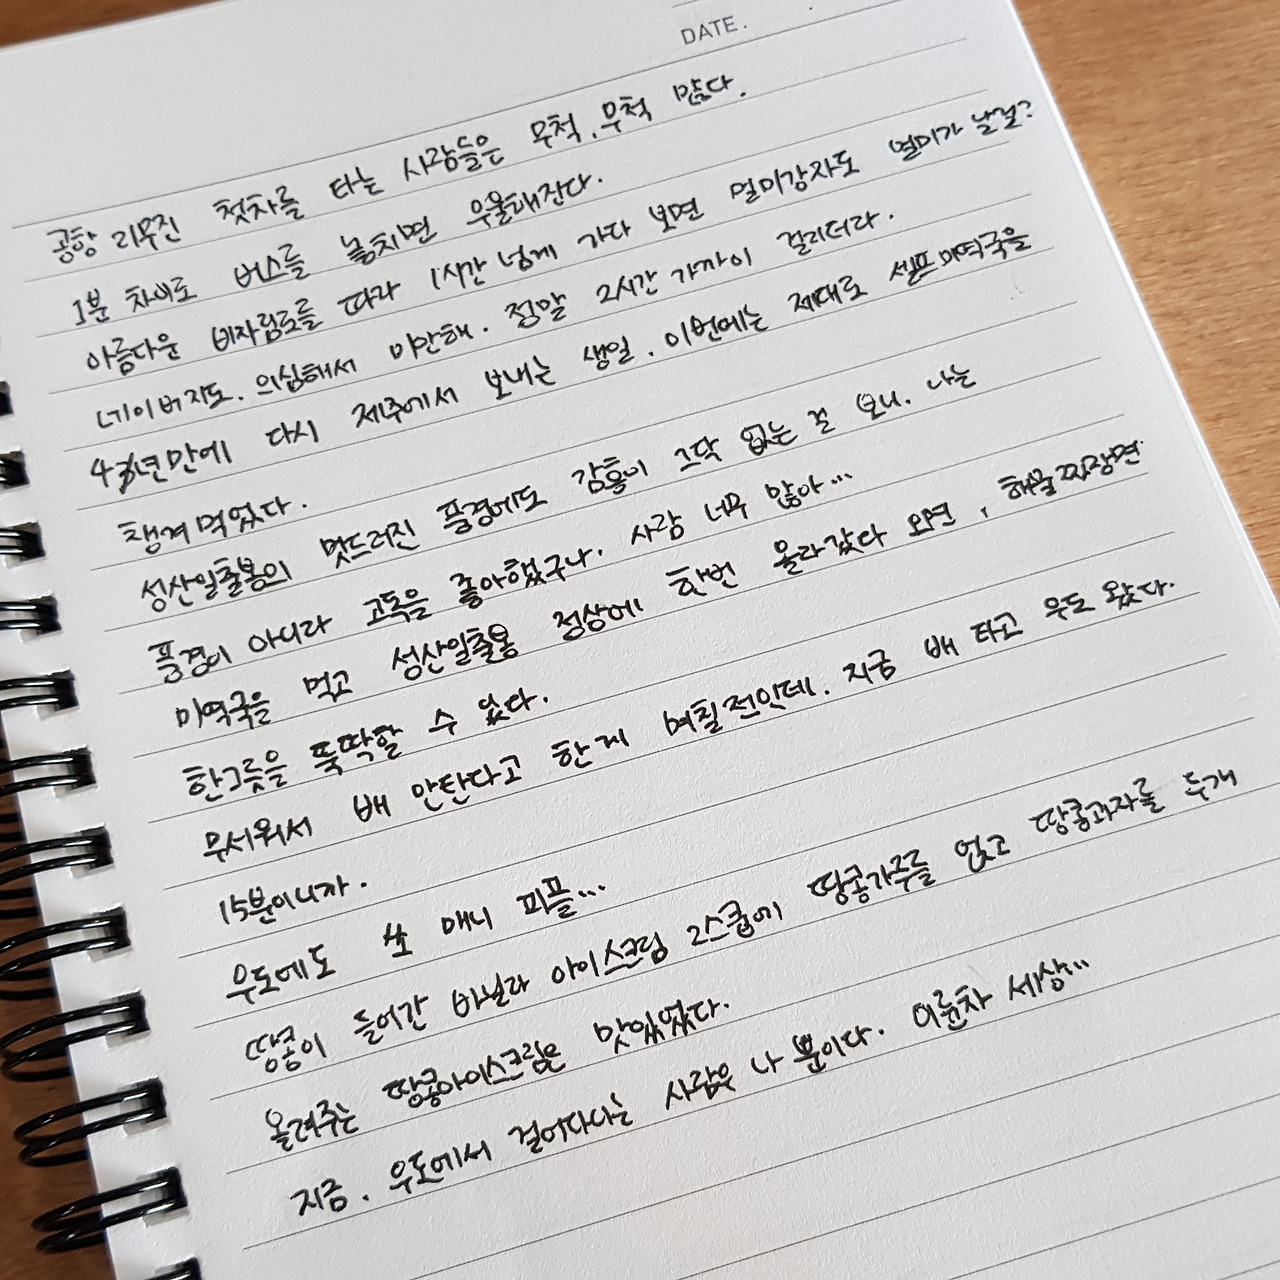 DATE.
공항 리무진 첫차를 타는 사람들은 무척, 무척 많다.
1분 차이로 버스를 놓치면 우울해진다.
아름다운 비자림로를 따라 1시간 넘게 가다 보면 멀미강자도 멀미가 날걸?
네이버지도. 의심해서 미안해. 정말 2시간 가까이 걸리더라.
4년만에 다시 제주에서 보내는 생일. 이번에는 제대로 셀프미역국을
챙겨먹었다.
성산일출봉의 멋드러진 풍경에도 감흥이 그닥 없는 걸 보니. 나는
풍경이 아니라 고독을 좋아했구나. 사람 너무 많아...
미역국을 먹고 성산일출봉 정상에 한번 올라갔다 오면, 해물짜장면
한그릇을 뚝딱할 수 있다.
무서워서 배 안탄다고 한게 며칠전인데. 지금 배 타고 우도 왔다.
15분이니까.
우도에도 쏘 매니 피플...
땅콩이 들어간 바닐라 아이스크림 2스쿱에 땅콩가루를 얹고 땅콩과자를 두개
올려주는 땅콩아이스크림은 맛있었다.
지금. 우도에서 걸어다니는 사람은 나 뿐이다. 이륜차 세상...